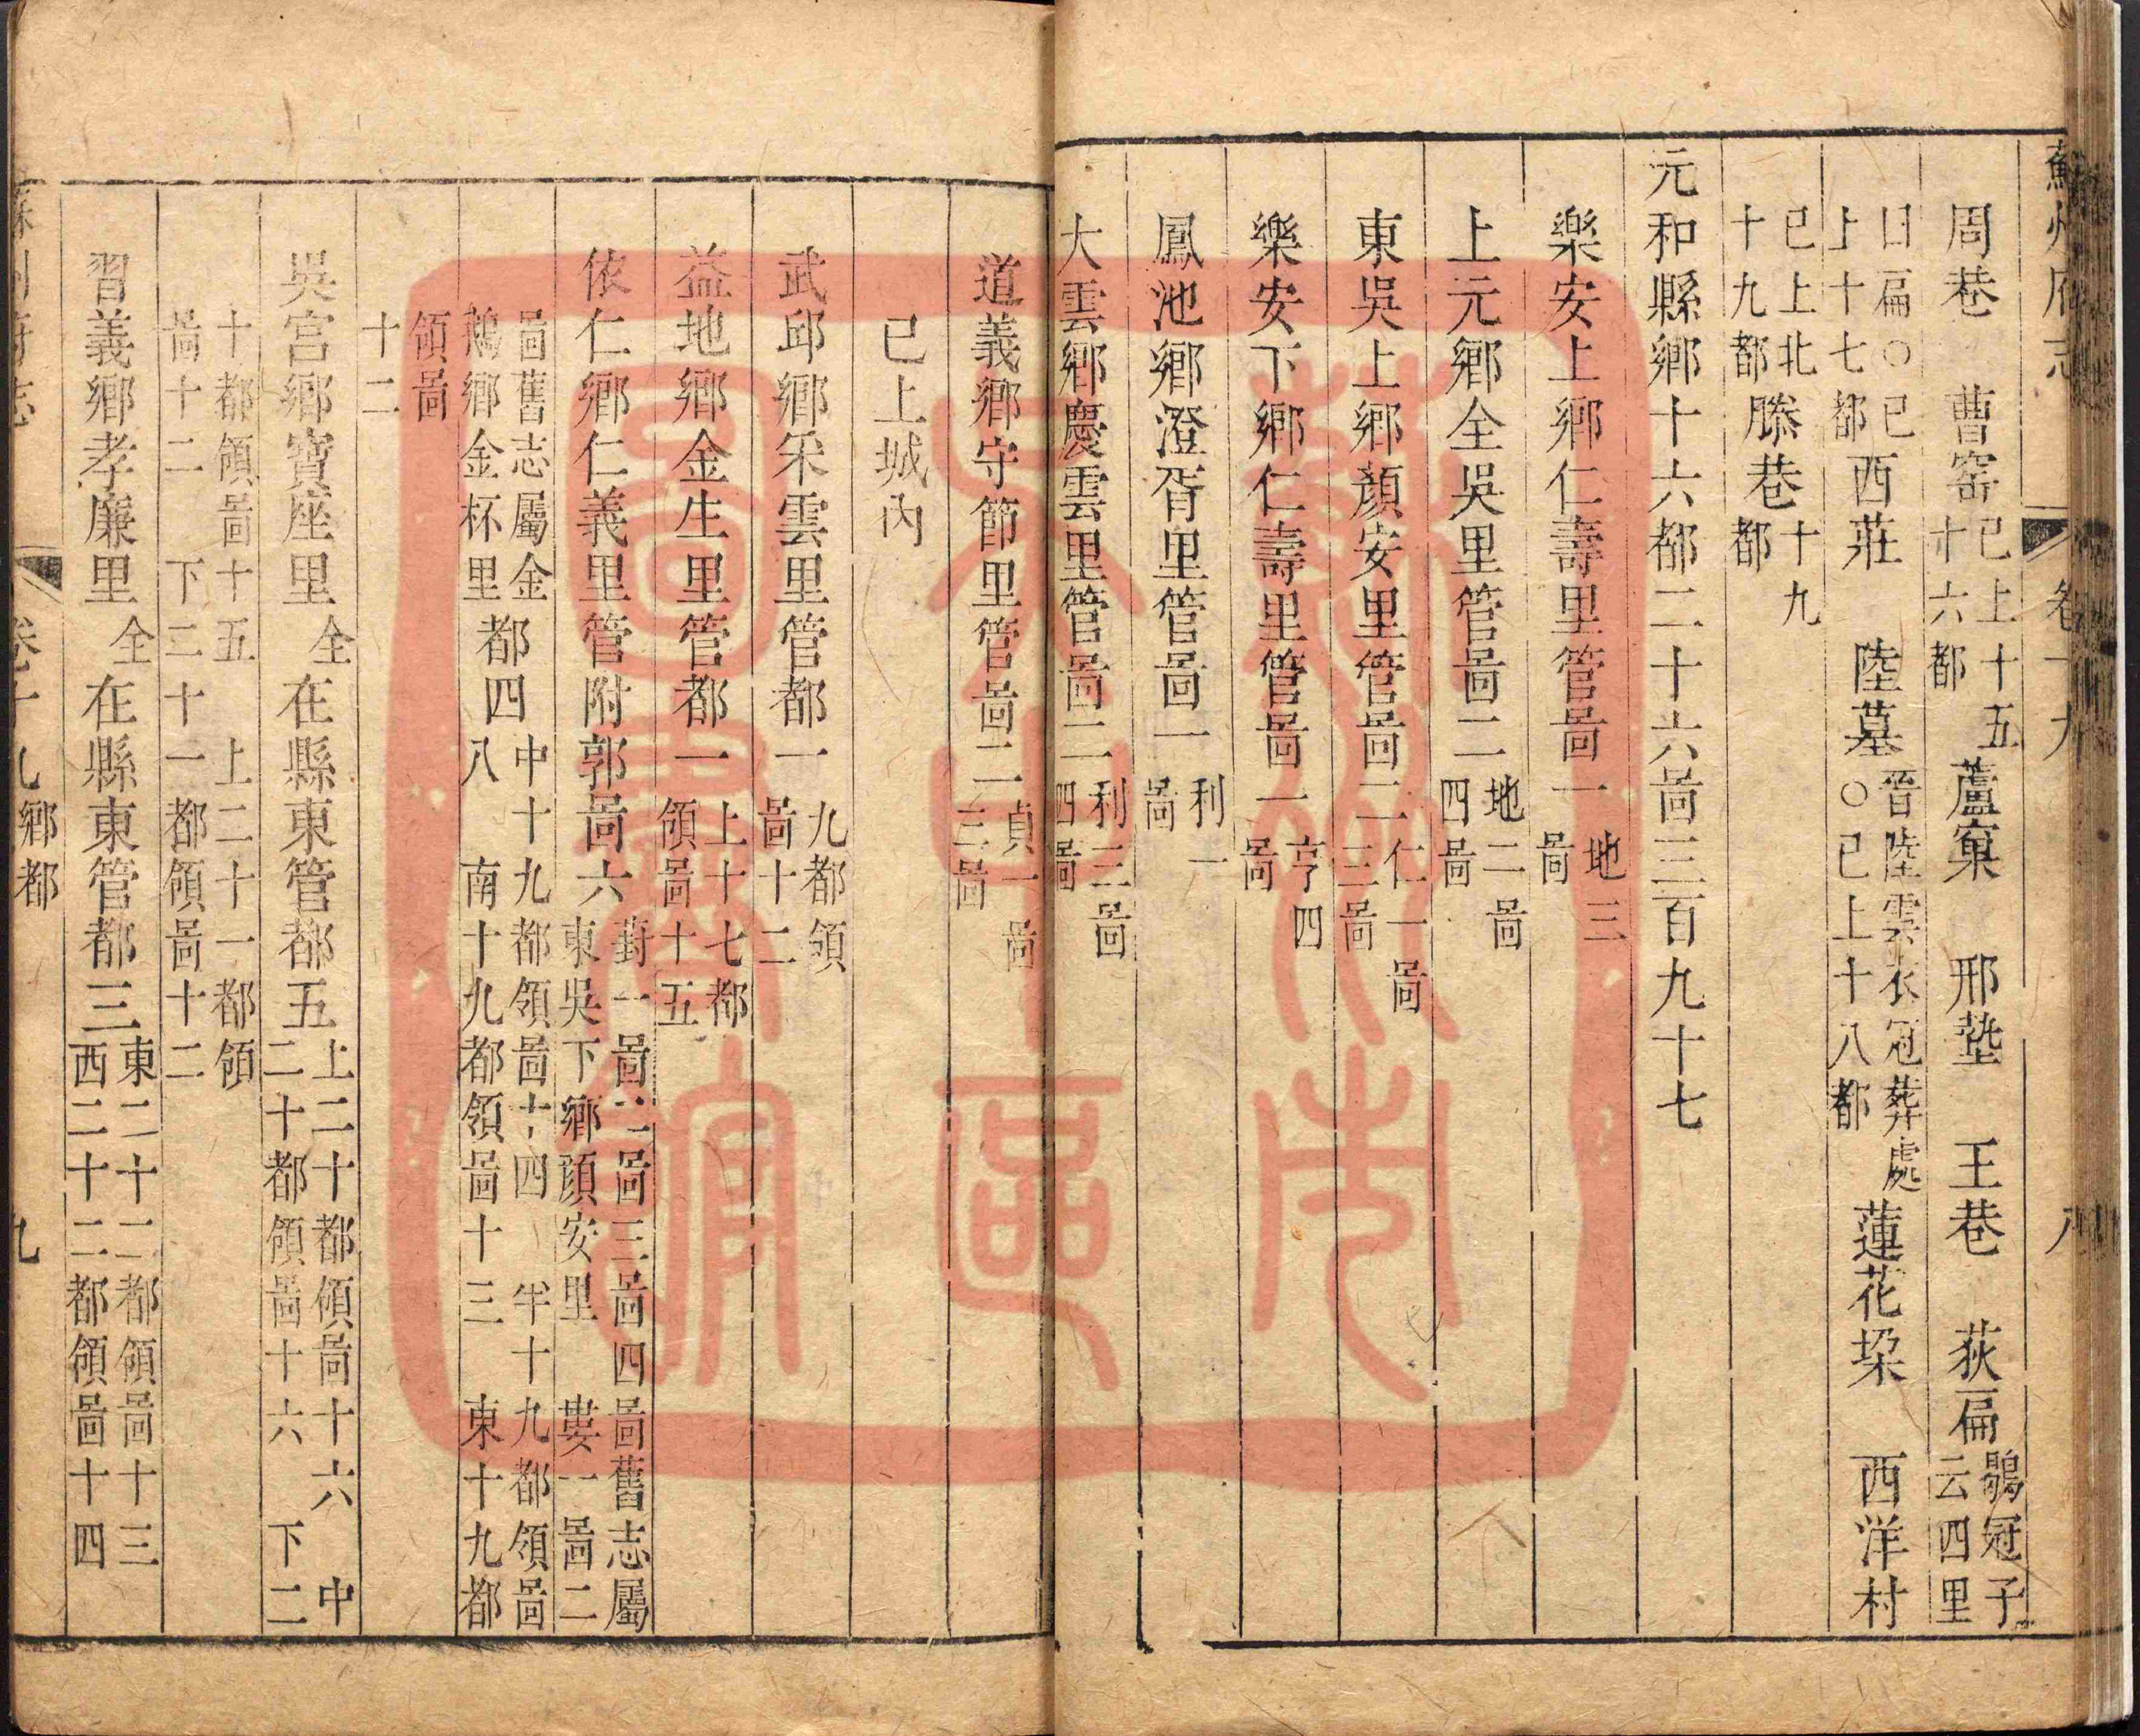 蘇州府志 卷十九 八
周巷 曹窑已上十五十六都 蘆窠 邢墊 王巷 荻扁鶡冠子云四里
曰扁○已上十七都 西莊 陸墓晉陸雲衣冠葬處○已上十八都 蓮花垛 西洋村
已上北十九都 滕巷十九都
元和縣鄉十六都二十六啚三百九十七
樂安上鄉仁壽里管啚一地三啚
上元鄉全吳里管啚二地二啚四啚
東吳上鄉顏安里管啚二仁一啚三啚
樂安下鄉仁壽里管啚一亨四啚
鳳池鄉澄胥里管啚一利一啚
大雲鄉慶雲里管啚二利三啚四啚
道義鄉守節里管啚二貞一啚三啚
已上城內
武邱鄉采雲里管都一九都領啚十二
益地鄉金生里管都一上十七都領啚十五
依仁鄉仁義里管附郭啚六葑一啚二啚三啚四啚舊志屬東吳下鄉顏安里 婁一啚二
啚舊志屬金鵝鄉金杯里 都四中十九都領啚十四 半十九都領啚八 南十九都領啚十三 東十九都
領啚十二
吳宮鄉寶座里全在縣東管都五上二十都領啚十六 中二十都領啚十六 下二
十都領啚十五 上二十一都領啚十二 下二十一都領啚十二
習義鄉孝廉里全在縣東管都三東二十二都領啚十三西二十二都領啚十四
蘇州府志 卷十九鄉都 九
蘇州市古舊書店圖書